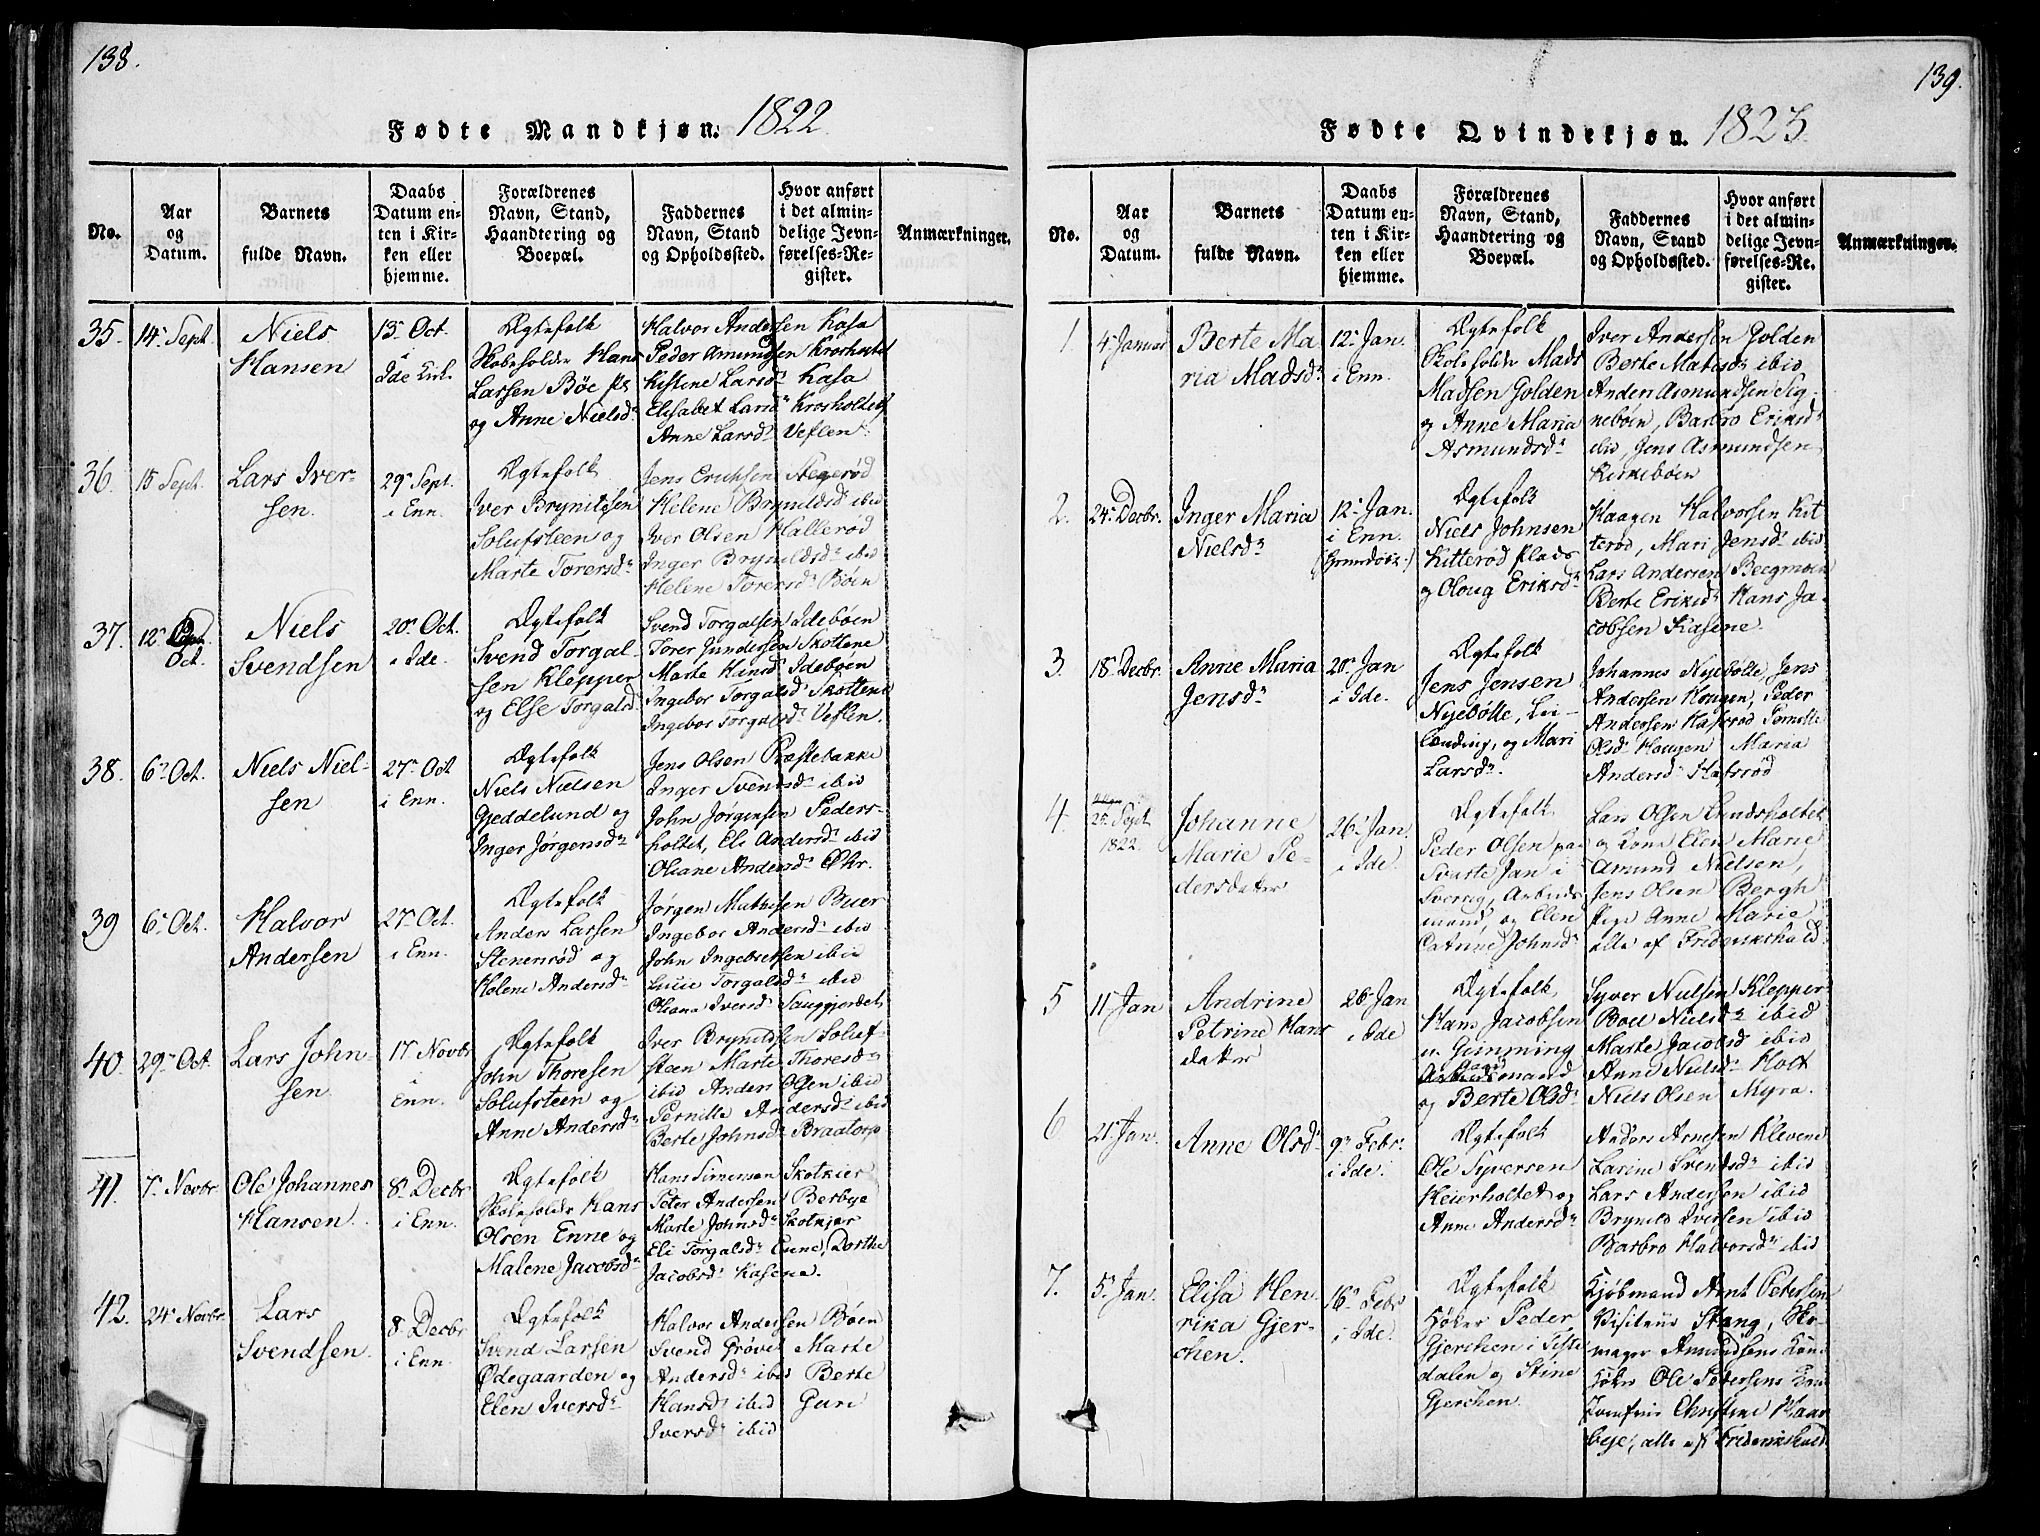 138.
Fødte Mandkjøn. 1822
No.
Aar
og
Datum.
Barnets
fulde Navn.
Daabs
Datum en-
ten i Kir-
ken eller
hjemme.
Forældrenes
Navn, Stand,
Haandtering og
Boepæl.
Faddernes
Navn, Stand
og Opholdssted.
Hvor anført
i det almin-
delige Jevn-
førelses-Re-
gister.
Anmærkninger.
35. 14 Sept.
Niels
Hansen
13 Oct.
i
Ide Kirke
Ægtefolk
Huusholder Hans
Larsen Böe Pl.
og Anne Nielsd.
Halvor Andersen Kasa
Peder Amundsen Krosholtet
Kistine Larsd. Kasa
Elisabet Larsd. Krosholtet
Anne Larsd. Veflen
36. 15 Sept.
Lars Iver-
sen.
29 Sept.
i Enn.
Ægtefolk
Iver Brynildsen
Solufsteen og
Marte Torersd.
Jens Erichsen
Helene Brynildsd. ibid
Iver Olsen Hallerød
Inger Brynildsd. ibid
Helene Torersd. Böen
37. 12
Oct.
Niels
Svendsen
20 Oct.
i Ide.
Ægtefolk
Svend Torgal-
sen Klepper
og Else Torgalsd
Svend Torgalsen Ideböen
Torer Gundersen Skottene
Marte Hansd. Ideböen
Ingebor Torgalsd. Skottene
Ingebor Torgalsd. Veflen.
38. 6 Oct.
Niels Niel-
sen
27 Oct
i Enn.
Ægtefolk
Niels Nielsen
Gjeddelund og
Inger Jörgensd.
Jens Olsen Præstebakke
Inger Svendsd. ibid
John Jörgensen Peders-
holtet, Eli Andersd. ibid
Oliane Andersd.
39 6 Oct.
Halvor
Andersen
27 Oct.
i Enn.
Ægtefolk
Anders Larsen
Stenerød og
Helene Andersd.
Jörgen Mathisen Buer
Ingebor Andersd. ibid
John Ingebretsen ibid
Lucie Torgalsd. ibid
Oliana Iversd. Sauggjerdet
40 29 Oct.
Lars John-
sen
17 Novbr
i
Enn.
Ægtefolk
John Thoresen
Solufsteen og
Anne Andersd.
Iver Brynildsen Soluf-
steen Marte Thoresd.
ibid Anders Olsen ibid
Pernille Andersd. ibid
Berte Johnsd. Braatorp
41. 7 Novbr
Ole Johannes
Hansen.
8 Decbr
i Enn.
Ægtefolk
Huusholder Hans
Olsen Enne og
Malene Jacobsd.
Hans Simenson Skotkier
Peter Andersen Berbye
Marte Johnsd. Skotkjer
Eli Torgalsd. Enne, Dorthe
Jacobsd. Kasene.
42. 24 Novbr
Lars
Svendsen.
8 Decbr
i Enn.
Ægtefolk
Svend Larsen
Ødegaarden og
Elen Iversd.
Halvor Andersen Böen
Svend Pröve Marte
Andersd. ibid Berte
Hansd. ibid Guri
Iversd. ibid
139.
Fødte Qvindekjøn. 1823.
No.
Aar
og
Datum.
Barnets
fulde Navn.
Daabs
Datum en-
ten i Kir-
ken eller
hjemme.
Forældrenes
Navn, Stand,
Haandtering og
Boepæl.
Faddernes
Navn, Stand
og Opholdssted.
Hvor anført
i det almin-
delige Jevn-
førelses-Re-
gister.
Anmærkninger.
1 4 Januar
Berte Ma
ria Madsd.
12 Jan.
i Enn.
Ægtefolk
Mads
Madsen Golden
og Anne Maria
Asmundsd.
Iver Andersen Golden
Berte Matisd. ibid
Anders Asmundsen Sig-
neböen, Barbro Eriksd.
ibid, Jens Asmundsen
Kirkeböen
2. 24 Decbr.
Inger Maria
Nielsd.
12 Jan.
i Enn.
Ægtefolk
Niels Johnsen
Kitterød Plads
og Oloug Eriksd.
Haagen Halvorsen Kit
terød, Mari Jensd. ibid
Lars Andersen Beegmoen
Berte Eriksd. Hans Ja-
cobsen Kasene.
3. 18 Decbr.
Anne Maria
Jensd.
20 Jan
i Ide.
Ægtefolk
Jens Jensen
Nyebölle, Lei-
lænding, og Mari
Larsd.
Johannes Nyebölle, Jens
Andersen Hougen, Peder
Andersen Hafsrød Pernille
Olsd. Hougen Maria
Andersd. Hafsrød
4. 25 Sept
1822.
Johanne
Marie Pe-
dersdatter
26 Jan.
i Ide.
Ægtefolk
Peder Olsen paa
Svarte Jan i
Sverrig, Arbeids
mand, og Elen
Catrine Johnsd.
Lars Olsen Lundsholtet
og Kone Elen Marie
Amund Nielsen,
Jens Olsen Bergh
Pige Anne Marie
alle af Friderikshald
5 11 Jan
Andrine
Petrine Hans
datter
26 Jan
i Ide
Ægtefolk
Hans Jacobsen
u. Gimming
Arbeidsmand
og Berte Olsd.
Syver Nielsen Klepper
Boel Nielsd. ibid
Marte Jacobsd. ibid
Anne Nielsd. Holt
Niels Olsen Myra.
6. 21 Jan.
Anne Olsd.
9 Febr.
i Ide
Ægtefolk
Ole Syversen
Heierholtet og
Anne Andersd.
Anders Arnesen Klevene
Larine Svendsd. ibid
Lars Andersen ibid
Brynild Iversen ibid
Barbro Halvorsd. ibid
7. 5 Jan.
Elisa Hen
rika Gjer-
chen.
16 Febr
i Ide.
Ægtefolk
Høker Peder
Gjerchen i Tiste
dalen og Stine
Gjerchen.
Kjöbmand Arnt Petersen
Visiteur Stang, Sko-
mager Amundsens Kone
Høker Ole Petersens Kone
Jomfrue Christine Haar
bye, alle af Friderikshald